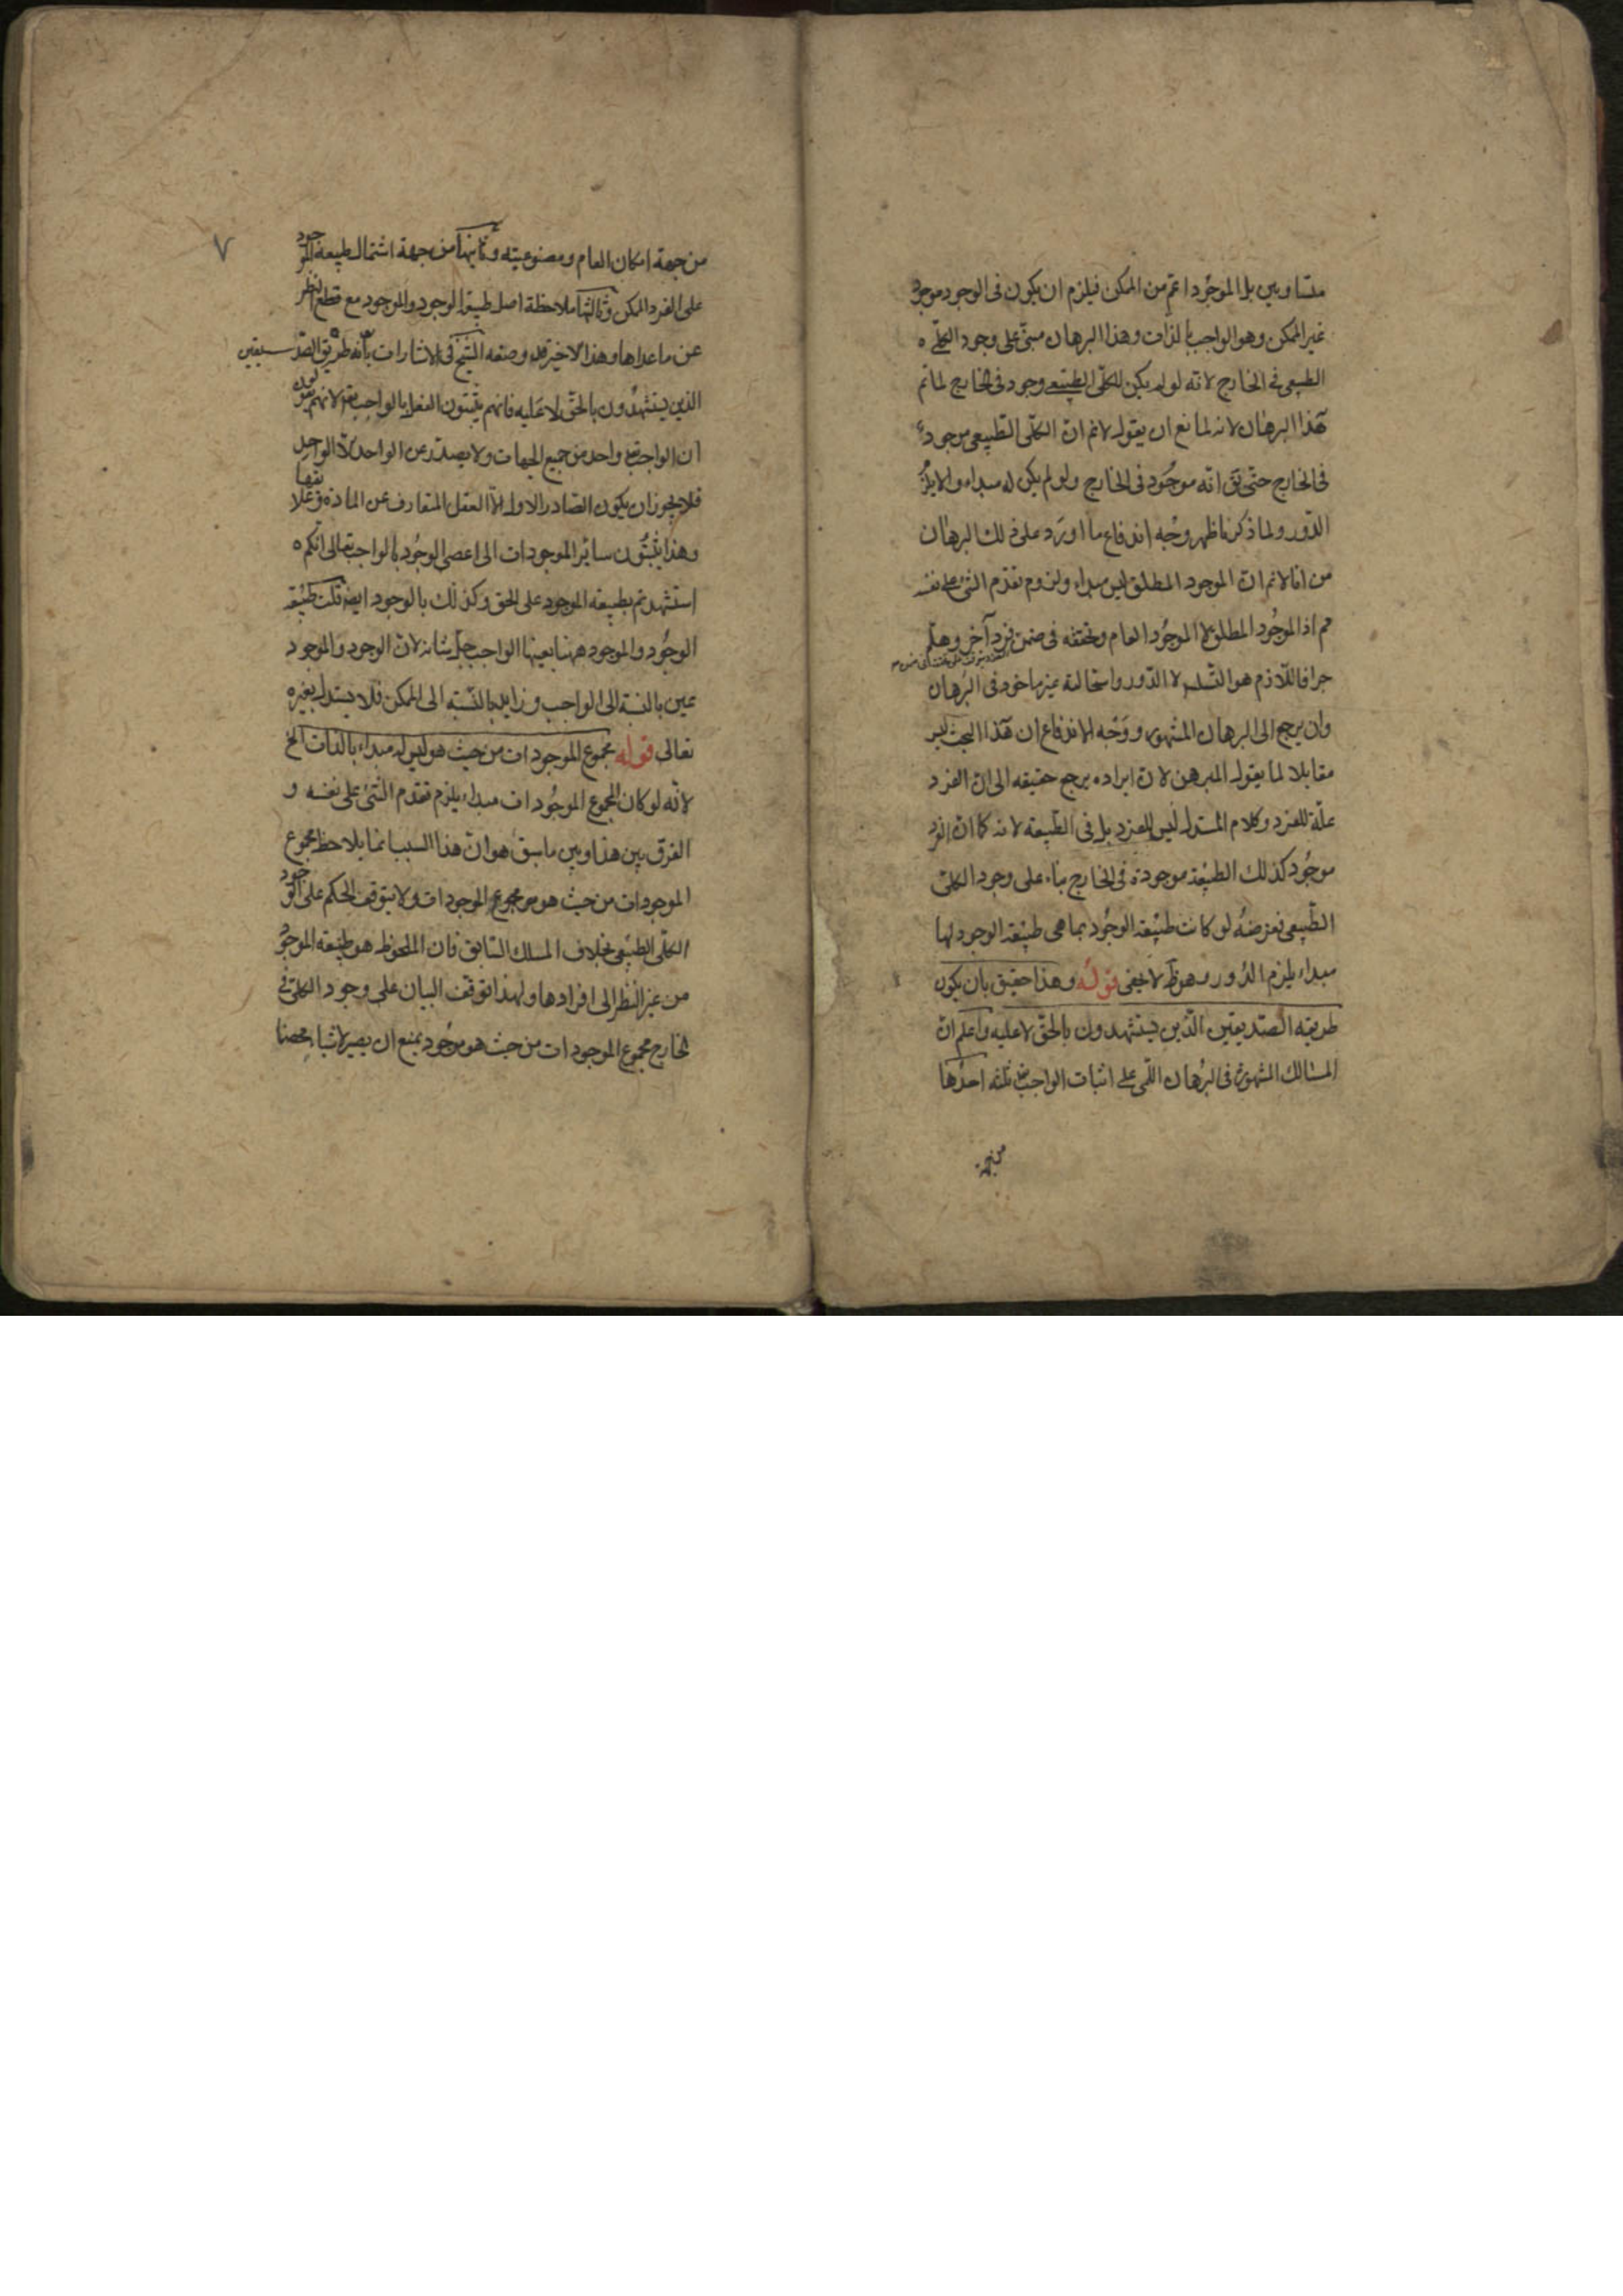 متساويين بل الموجود اعم من الممكن فيلزم ان يكون فى الوجود موجود
غير الممكن وهو الواجب بالذات وهذا البرهان مبنى على وجود الكلى
الطبيعى فى الخارج لانه لو لم يكن للكلى الطبيعى وجود فى الخارج لما تم
هذا البرهان لانه لمانع ان يقول لانم ان الكلى الطبيعى موجود
فى الخارج حتى يق انه موجود فى الخارج ولو لم يكن له مبداء والا يلزم
الدور ولما ذكرنا ظهر وجه اندفاع ما اورد على ذلك البرهان
من انا لانم ان الموجود المطلق ليس مبداء ولزوم تقدم الشئ على نفسه
مم اذ الموجود المطلق الموجود العام وتحققه فى ضمن فرد آخر وهلم
جرا فاللازم هو التسلسل لا الدور واستحالته غير ماخوذ فى البرهان
وان يرجع الى البرهان المشهور ووجه الاندفاع ان هذا البحث ليس
مقابلا لما يقوله المبرهن لان ايراده يرجع حقيقه الى ان الفرد
علة للفرد وكلام المستدل ليس للفرد بل فى الطبيعه لانه كما ان الفرد
موجود كذلك الطبيعة موجودة فى الخارج بناء على وجود الكلى
الطبيعى فغرضه لو كانت طبيعة الوجود بما هى طبيعة الوجود لها
مبداء يلزم الدور وهو ظ لا يخفى قوله وهذا حقيق بان يكون
طريقه الصديقين الذين يستشهدون بالحق لا عليه واعلم ان
المسالك المشهورة فى البرهان اللمى على اثبات الواجب تع ثلثه احدها
من جهة
٧
من جهة امكان العام ومصنوعيته وثانيها من جهة اشتمال طبيعه الموجود
على الفرد الممكن وثالثها ملاحظة اصل طبيعة الوجود والموجود مع قطع النظر
عن ماعداها وهذا الاخير قد وصفه الشيخ فى الاشارات بانه طريق الصديقين
الذين يستشهدون بالحق لا عليه فانهم يثبتون العقل بالواجب تع لانهم يقولون
ان الواجب تع واحد من جميع الجهات ولا يصدر عن الواحد الا الواحد
فلا يجوز ان يكون الصادر الاول الا العقل المفارق عن الماده
وهذا يثبتون سائر الموجودات الى اعصى الوجود بالواجب تعالى انكم
استشهدتم بطبيعه الموجود على الحق وكذلك بالوجود ايضا قلت طبيعة
الوجود والموجود ههنا بعينها الواجب جل شانه لان الوجود والموجود
عين بالنسبة الى الواجب وزايد بالنسبه الى الممكن فلا يستدل بغيره
تعالى قوله مجموع الموجودات من حيث هو ليس له مبداء بالذات الخ
لانه لو كان لمجموع الموجودات مبداء يلزم تقدم الشئ على نفسه و
الفرق بين هذا وبين ماسبق هو ان هذا السبب انما يلاحظ مجموع
الموجودات من حيث هو مجموع الموجودات ولا يتوقف الحكم على وجود
الكلى الطبيعى بخلاف المسلك السابق فان الملحوظ هو طبيعه الموجود
من غير النظر الى افرادها ولهذا توقف البيان على وجود الكلى فى
الخارج مجموع الموجودات من حيث هو موجود يمتنع ان يصير لاشيا محضا